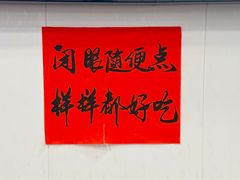 闭眼随便点
样样都好吃